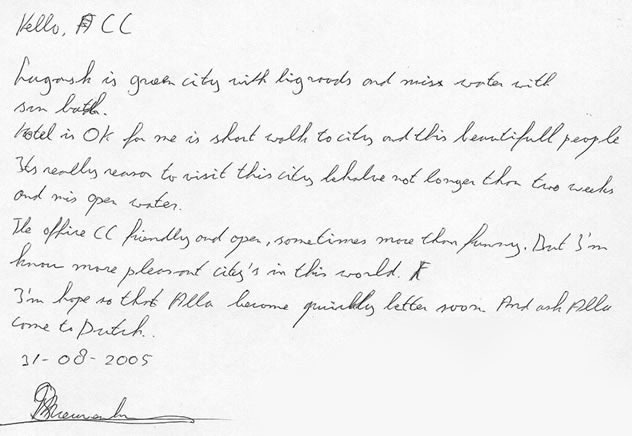 Hello, A CC
Lugansk is green city with big roads and miss water with
sun bath.
Hotel is OK for me is short walk to city and this beautifull people
Its really reason to visit this city behalve not longer than two weeks
and mis open water.
The office CC friendly and open, sometimes more than funny. But I'm
know more pleasant city's in this world.
I'm hope so that Alla become quickly letter soon. And ask Alla
come to Dutch.
31-08-2005